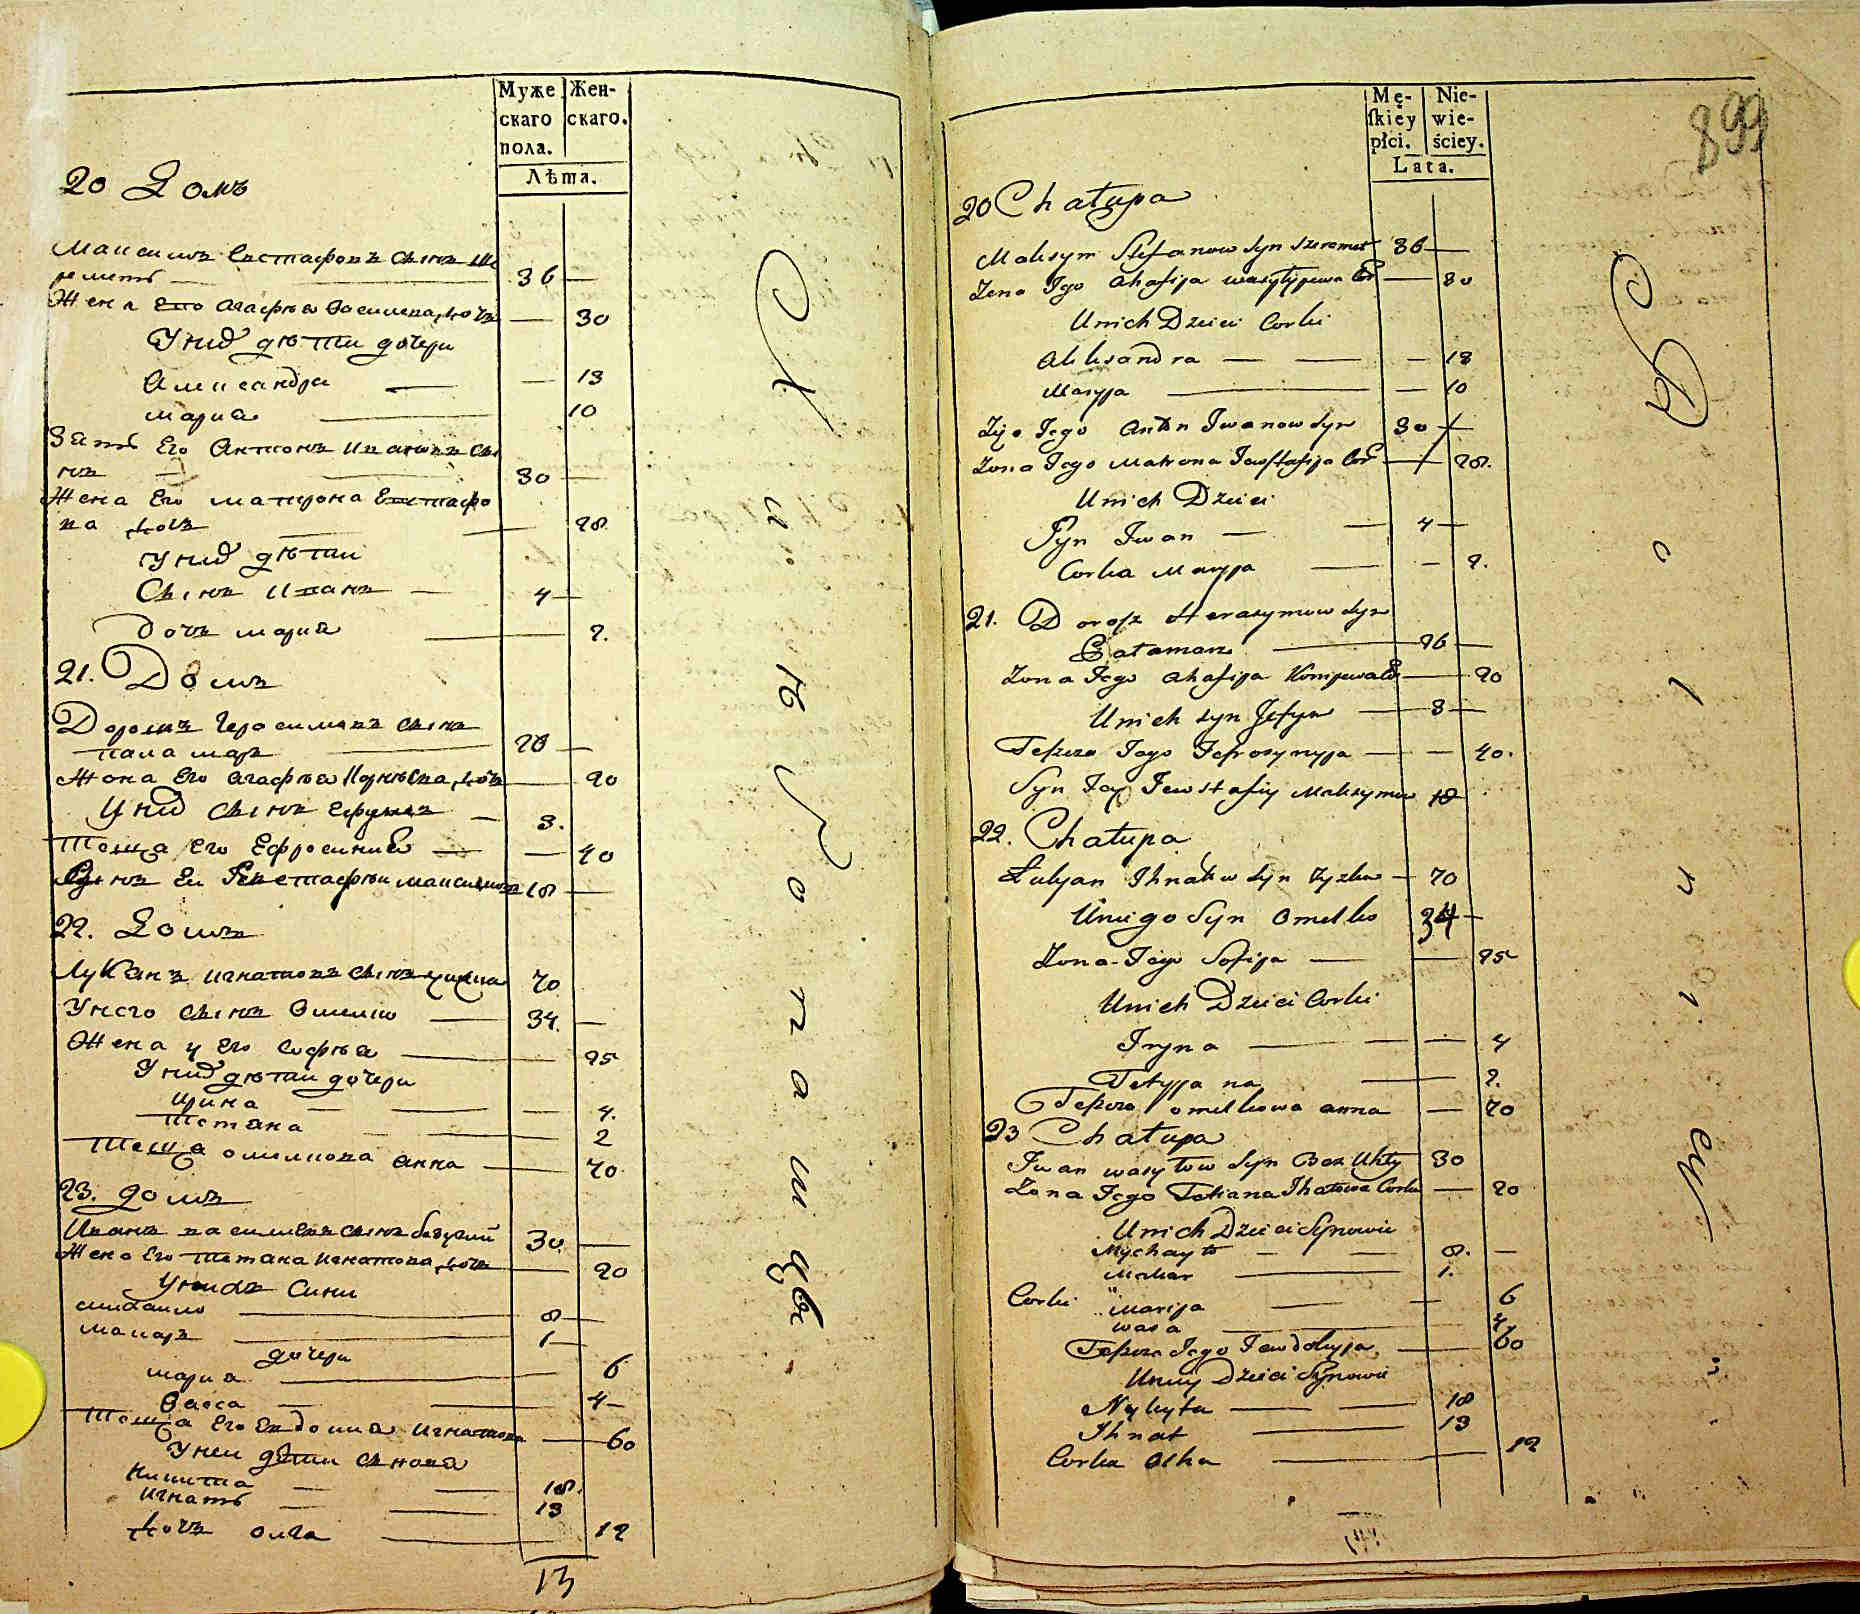 Муже
скаго
пола.
Жен-
скаго.
Лѣта.
20 Домъ
Максимъ Евстафовъ сынъ Ше
реметъ — 36 —
Жена Его Агафѣа Василева дочь — 30
У них дѣти дочери
Александра — — 13
мариа — 10
Зать Его Антонъ Ивановъ сы
нъ — 30 —
Жена Его матрона Евстафо
ва дочь — 28.
У них дѣти
Сынъ Иванъ — 4 —
Дочь мариа — 2.
21. Домъ
Дорошъ Герасимовъ сынъ
паламаръ — 26 —
Жона Его Агафѣа дочь — 20
У них сынъ Ефумъ — 3.
Теща Его Ефросиниа — — 40
Сынъ Еи Евстафѣи максимовъ 18 —
22. Домъ
Лукянъ Игнатовъ сынъ 70
У него сынъ Омелко — 34. —
Жена у Его Софѣа — 25
У них дѣти дочери
Ирина — — 4.
Тетяна — — 2
Теща омелкова анна — 70
23. домъ
Иванъ василевъ сынъ безухий 30 —
Жена Его Тетяна Игнатова дочь — 20
У нихъ Сини
михайло — 8 —
макаръ — 1 —
дочери
мариа — 6
Васса — 4 —
Теща Его Евдокиа Игнатова — 60
У неи дѣти синова
Никита — — 18.
Игнатъ — — 13
дочь олга — 12
13
Mę-
ſkiey
płci.
Nie-
wie-
ściey.
Lata.
899
20 Chałupa
Maksym Stefanow Syn Szeremet 36 —
Żona Jego Ahafija wasylijewa Cor — 30
Unich Dzieci Corki
Aleksandra — — — 13
Maryja — — 10
Zięc Jego Anton Iwanow Syn 30 —
Żona Jego Matrona Jewstafija Cor — 28.
Unich Dzieci
Syn Iwan — — 4 —
Corka Maryja — — 2.
21. Dorosz Herasymow Syn
Pałamar — 26 —
Żona Jego Ahafija — 20
Unich syn Jefym — 3 —
Teszcza Jego Jefrosynyja — — 40.
Syn Jey Jewstafiy Maksymow 18
22. Chałupa
Łukjan Ihnatow Syn — 70
Uniego Syn Omelko 34 —
Żona Jego Sofija — — 25
Unich Dzieci Corki
Iryna — — — 4
Tetyjana — 2.
Teszcza omelkowa anna — 70
23 Chałupa
Iwan wasylow Syn Bez Uchy 30
Żona Jego Tatiana Ihatowa Corka — 20
Unich Dzieci Synowie
Mychayło — — 8. —
Makar — 1.
Corki Marija — — 6
wasa — 4
Teszcza Jego Jewdokyja — 60
Uniey Dzieci Synowie
Nykyta — — 18
Ihnat — 13
Corka Olha — 12